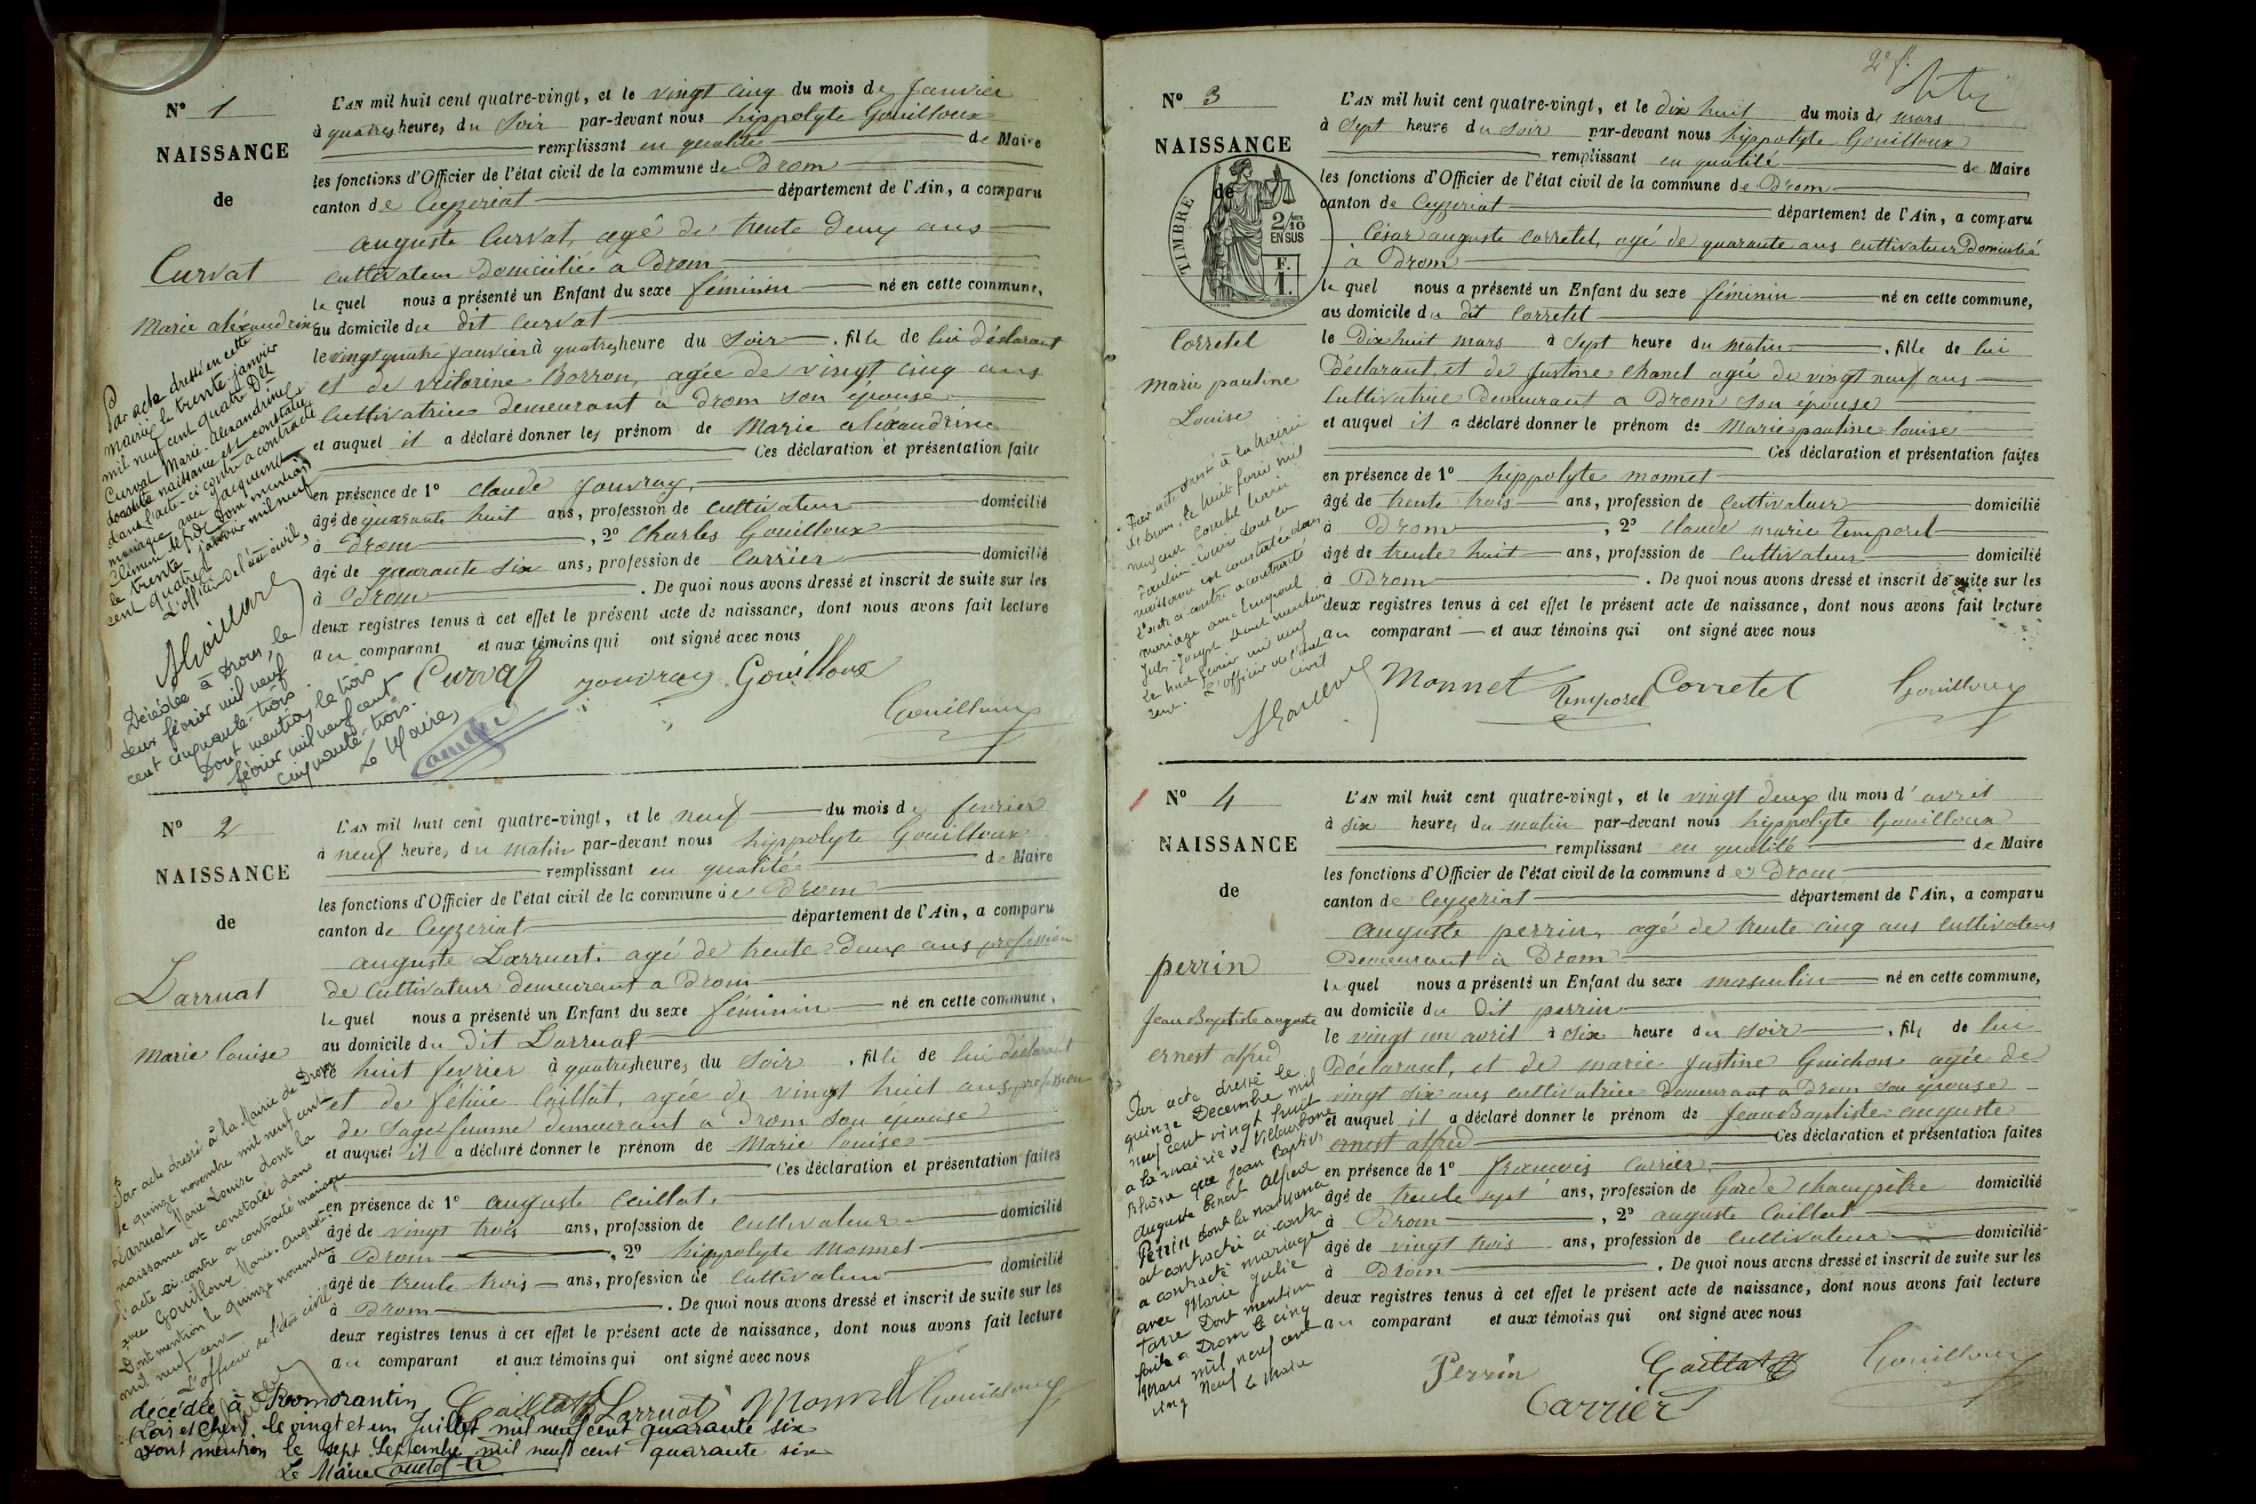 N° 1
NAISSANCE
de
Curvat
Marie aléxandrine
L'AN mil huit cent quatre-vingt, et le vingt cinq du mois de Janvier
à quatre heures du Soir par-devant nous hippolyte Gouilloux
remplissant en qualité de Maire
les fonctions d'Officier de l'état civil de la commune de Drom
canton de Ceyzeriat département de l'Ain, a comparu
auguste Curvat, agé de trente deux ans
cultivateur Domicilié à Drom
le quel nous a présenté un Enfant du sexe féminin né en cette commune,
au domicile du dit Curvat
le vingt quatre janvier à quatre heure du Soir, fille de lui déclarant
et de Victorine Borron, agée de vingt cinq ans
Cultivatrice demeurant à Drom son épouse
et auquel il a déclaré donner les prénom de Marie aléxandrine
Ces déclaration et présentation faite
en présence de 1° claude Jouvray,
âgé de quarante huit ans, profession de cultivateur domicilié
à Drom, 2° Charles Gouilloux
âgé de quarante six ans, profession de Carrier domicilié
à Drom. De quoi nous avons dressé et inscrit de suite sur les
deux registres tenus à cet effet le présent acte de naissance, dont nous avons fait lecture
au comparant et aux témoins qui ont signé avec nous
Curvat Jouvray Gouilloux
Gouilloux
Par acte dressé en cette
mairie le trente janvier
mil neuf cent quatre Dlle
Curvat Marie-Alexandrine
dont la naissance est constatée
dans l'acte ci-contre a contracté
mariage avec Jacquand
le trente janvier mil neuf
cent quatre
L'officier de l'état civil,
Décédée à Drom, le
deux février mil neuf
cent cinquante-trois.
Dont mention, le trois
février mil neuf cent
cinquante-trois.
Le Maire,
N° 2
NAISSANCE
de
Larruat
Marie louise
L'AN mil huit cent quatre-vingt, et le neuf du mois de fevrier
à neuf heures du matin par-devant nous hippolyte Gouilloux
remplissant en qualité de Maire
les fonctions d'Officier de l'état civil de la commune de Drom
canton de Ceyzeriat département de l'Ain, a comparu
auguste Larruat. agé de trente deux ans profession
de cultivateur demeurant a Drom
le quel nous a présenté un Enfant du sexe féminin né en cette commune,
au domicile du dit Larruat
le huit fevrier à quatre heures du soir, fille de lui déclarant
et de félicie Caillat, agée de vingt huit ans profession
de Sage femme demeurant a Drom son épouse
et auquel il a déclaré donner le prénom de Marie louise
Ces déclaration et présentation faites
en présence de 1° auguste Caillat.
âgé de vingt trois ans, profession de cultivateur domicilié
à Drom, 2° hippolyte Monnet
âgé de trente trois ans, profession de cultivateur domicilié
à Drom. De quoi nous avons dressé et inscrit de suite sur les
deux registres tenus à cet effet le présent acte de naissance, dont nous avons fait lecture
au comparant et aux témoins qui ont signé avec nous
Caillat Larruat Monnet Gouilloux
Par acte dressé à la Mairie de Drom
le quinze novembre mil neuf cent
Larruat Marie Louise dont la
naissance est constatée dans
l'acte ci-contre a contracté mariage
avec Gouilloux Marie-Auguste.
Dont mention le quinze novembre
mil neuf cent
L'officier de l'état civil
décédée à Romorantin
(Loir et Cher), le vingt et un Juillet mil neuf cent quarante six
Dont mention le sept Septembre mil neuf cent quarante six
Le Maire
2e f.
N° 3
NAISSANCE
de
TIMBRE
2/10
EN SUS
F.
1.
Corretel
Marie pauline
Louise
L'AN mil huit cent quatre-vingt, et le dix huit du mois de mars
à Sept heure du soir par-devant nous hippolyte Gouilloux
remplissant en qualité de Maire
les fonctions d'Officier de l'état civil de la commune de Drom
canton de Ceyzeriat département de l'Ain, a comparu
César auguste Corretel, agé de quarante ans cultivateur Domicilié
à Drom
le quel nous a présenté un Enfant du sexe féminin né en cette commune,
au domicile du dit Corretel
le Dix huit mars à Sept heure du matin, fille de lui
Déclarant, et de Justine Chanel agée de vingt neuf ans
Cultivatrice Demeurant a Drom son épouse
et auquel il a déclaré donner le prénom de Marie pauline louise
Ces déclaration et présentation faites
en présence de 1° hippolyte monnet
âgé de trente trois ans, profession de Cultivateur domicilié
à Drom, 2° claude marie Temporel
âgé de trente huit ans, profession de Cultivateur domicilié
à Drom. De quoi nous avons dressé et inscrit de suite sur les
deux registres tenus à cet effet le présent acte de naissance, dont nous avons fait lecture
au comparant et aux témoins qui ont signé avec nous
Monnet Temporel Corretel Gouilloux
Par acte dressé à la Mairie
de Drom, le huit février mil
neuf cent Corretel Marie
Pauline-Louise dont la
naissance est constatée dans
l'acte ci-contre a contracté
mariage avec Temporel
Jules-Joseph Dont mention
Le huit février mil neuf
cent. L'officier de l'état
civil
N° 4
NAISSANCE
de
perrin
Jean Baptiste auguste
ernest alfred
L'AN mil huit cent quatre-vingt, et le vingt deux du mois d'avril
à six heures du matin par-devant nous hippolyte Gouilloux
remplissant en qualité de Maire
les fonctions d'Officier de l'état civil de la commune de Drom
canton de Ceyzeriat département de l'Ain, a comparu
auguste perrin, agé de trente cinq ans cultivateur
Demeurant à Drom
le quel nous a présenté un Enfant du sexe masculin né en cette commune,
au domicile du Dit perrin
le vingt un avril à six heure du soir, fils de lui
Déclarant, et de marie Justine Guichon agée de
vingt six ans cultivatrice Demeurant a Drom son épouse
et auquel il a déclaré donner le prénom de Jean Baptiste auguste
ernest alfred Ces déclaration et présentation faites
en présence de 1° françois Carrier.
âgé de trente sept ans, profession de Garde champêtre domicilié
à Drom, 2° auguste Caillat
âgé de vingt trois ans, profession de cultivateur domicilié
à Drom. De quoi nous avons dressé et inscrit de suite sur les
deux registres tenus à cet effet le présent acte de naissance, dont nous avons fait lecture
au comparant et aux témoins qui ont signé avec nous
Perrin Caillat Gouilloux
Carrier
Par acte dressé le
quinze Decembre mil
neuf cent vingt huit
a la mairie de Villeurbanne
Rhône que Jean Baptiste
Auguste Ernest Alfred
Perrin dont la naissance
est contractée ci-contre
a contracté mariage
avec Marie Julie
Tarre Dont mention
faite a Drom le cinq
Mars mil neuf cent
vingt Neuf Le Maire